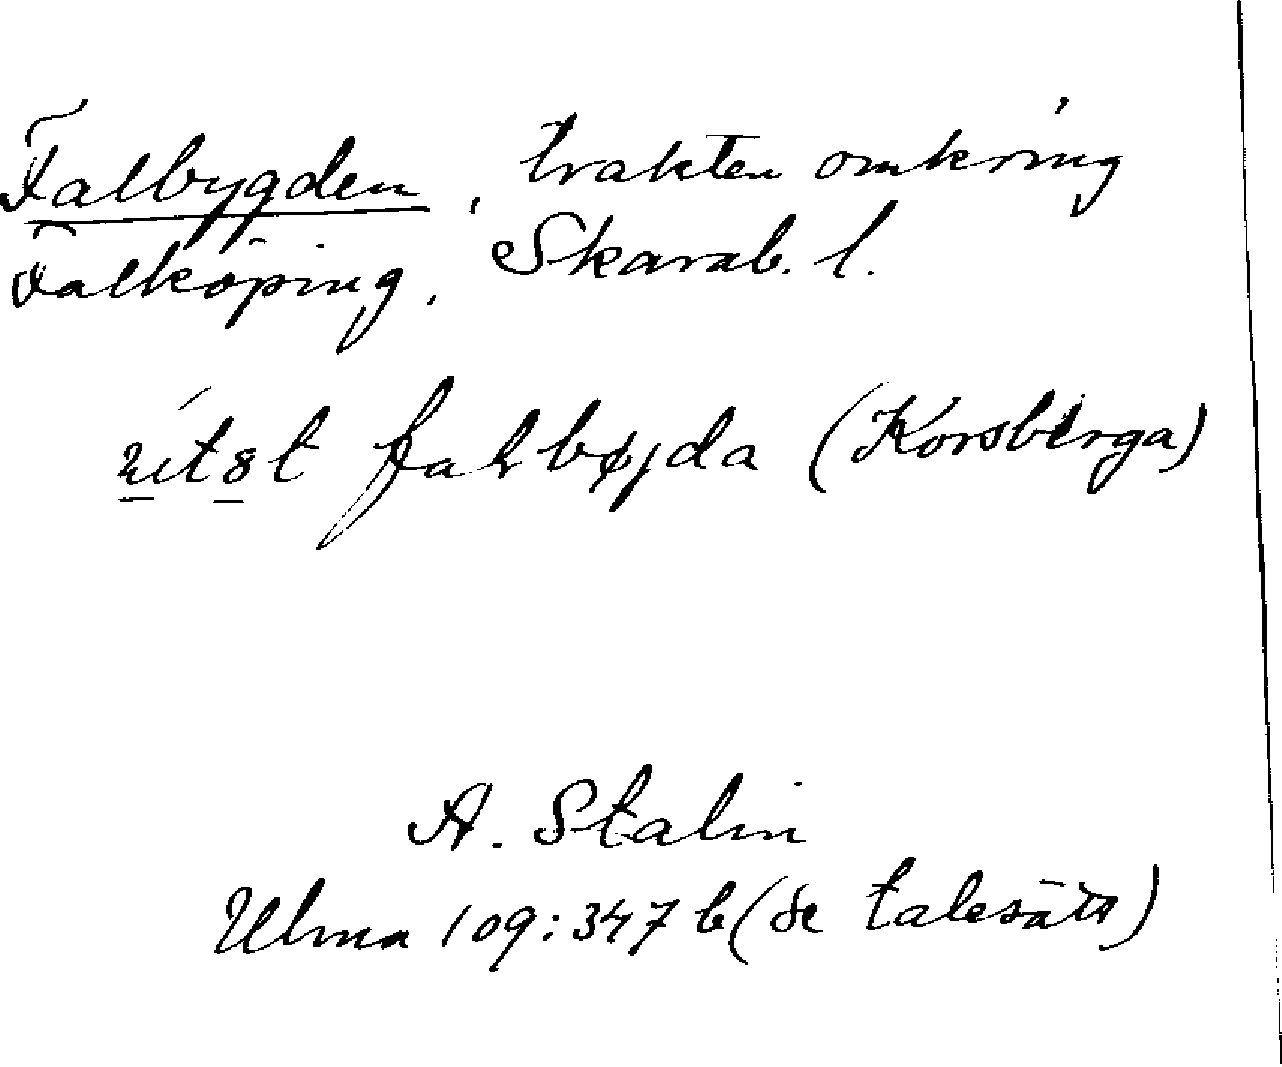 Falbygden, trakten omkring
Falköping, Skarab. l.
falbøjda (Korsberga)
A. Stalin
Ulma 109:347 b (se talesätt)